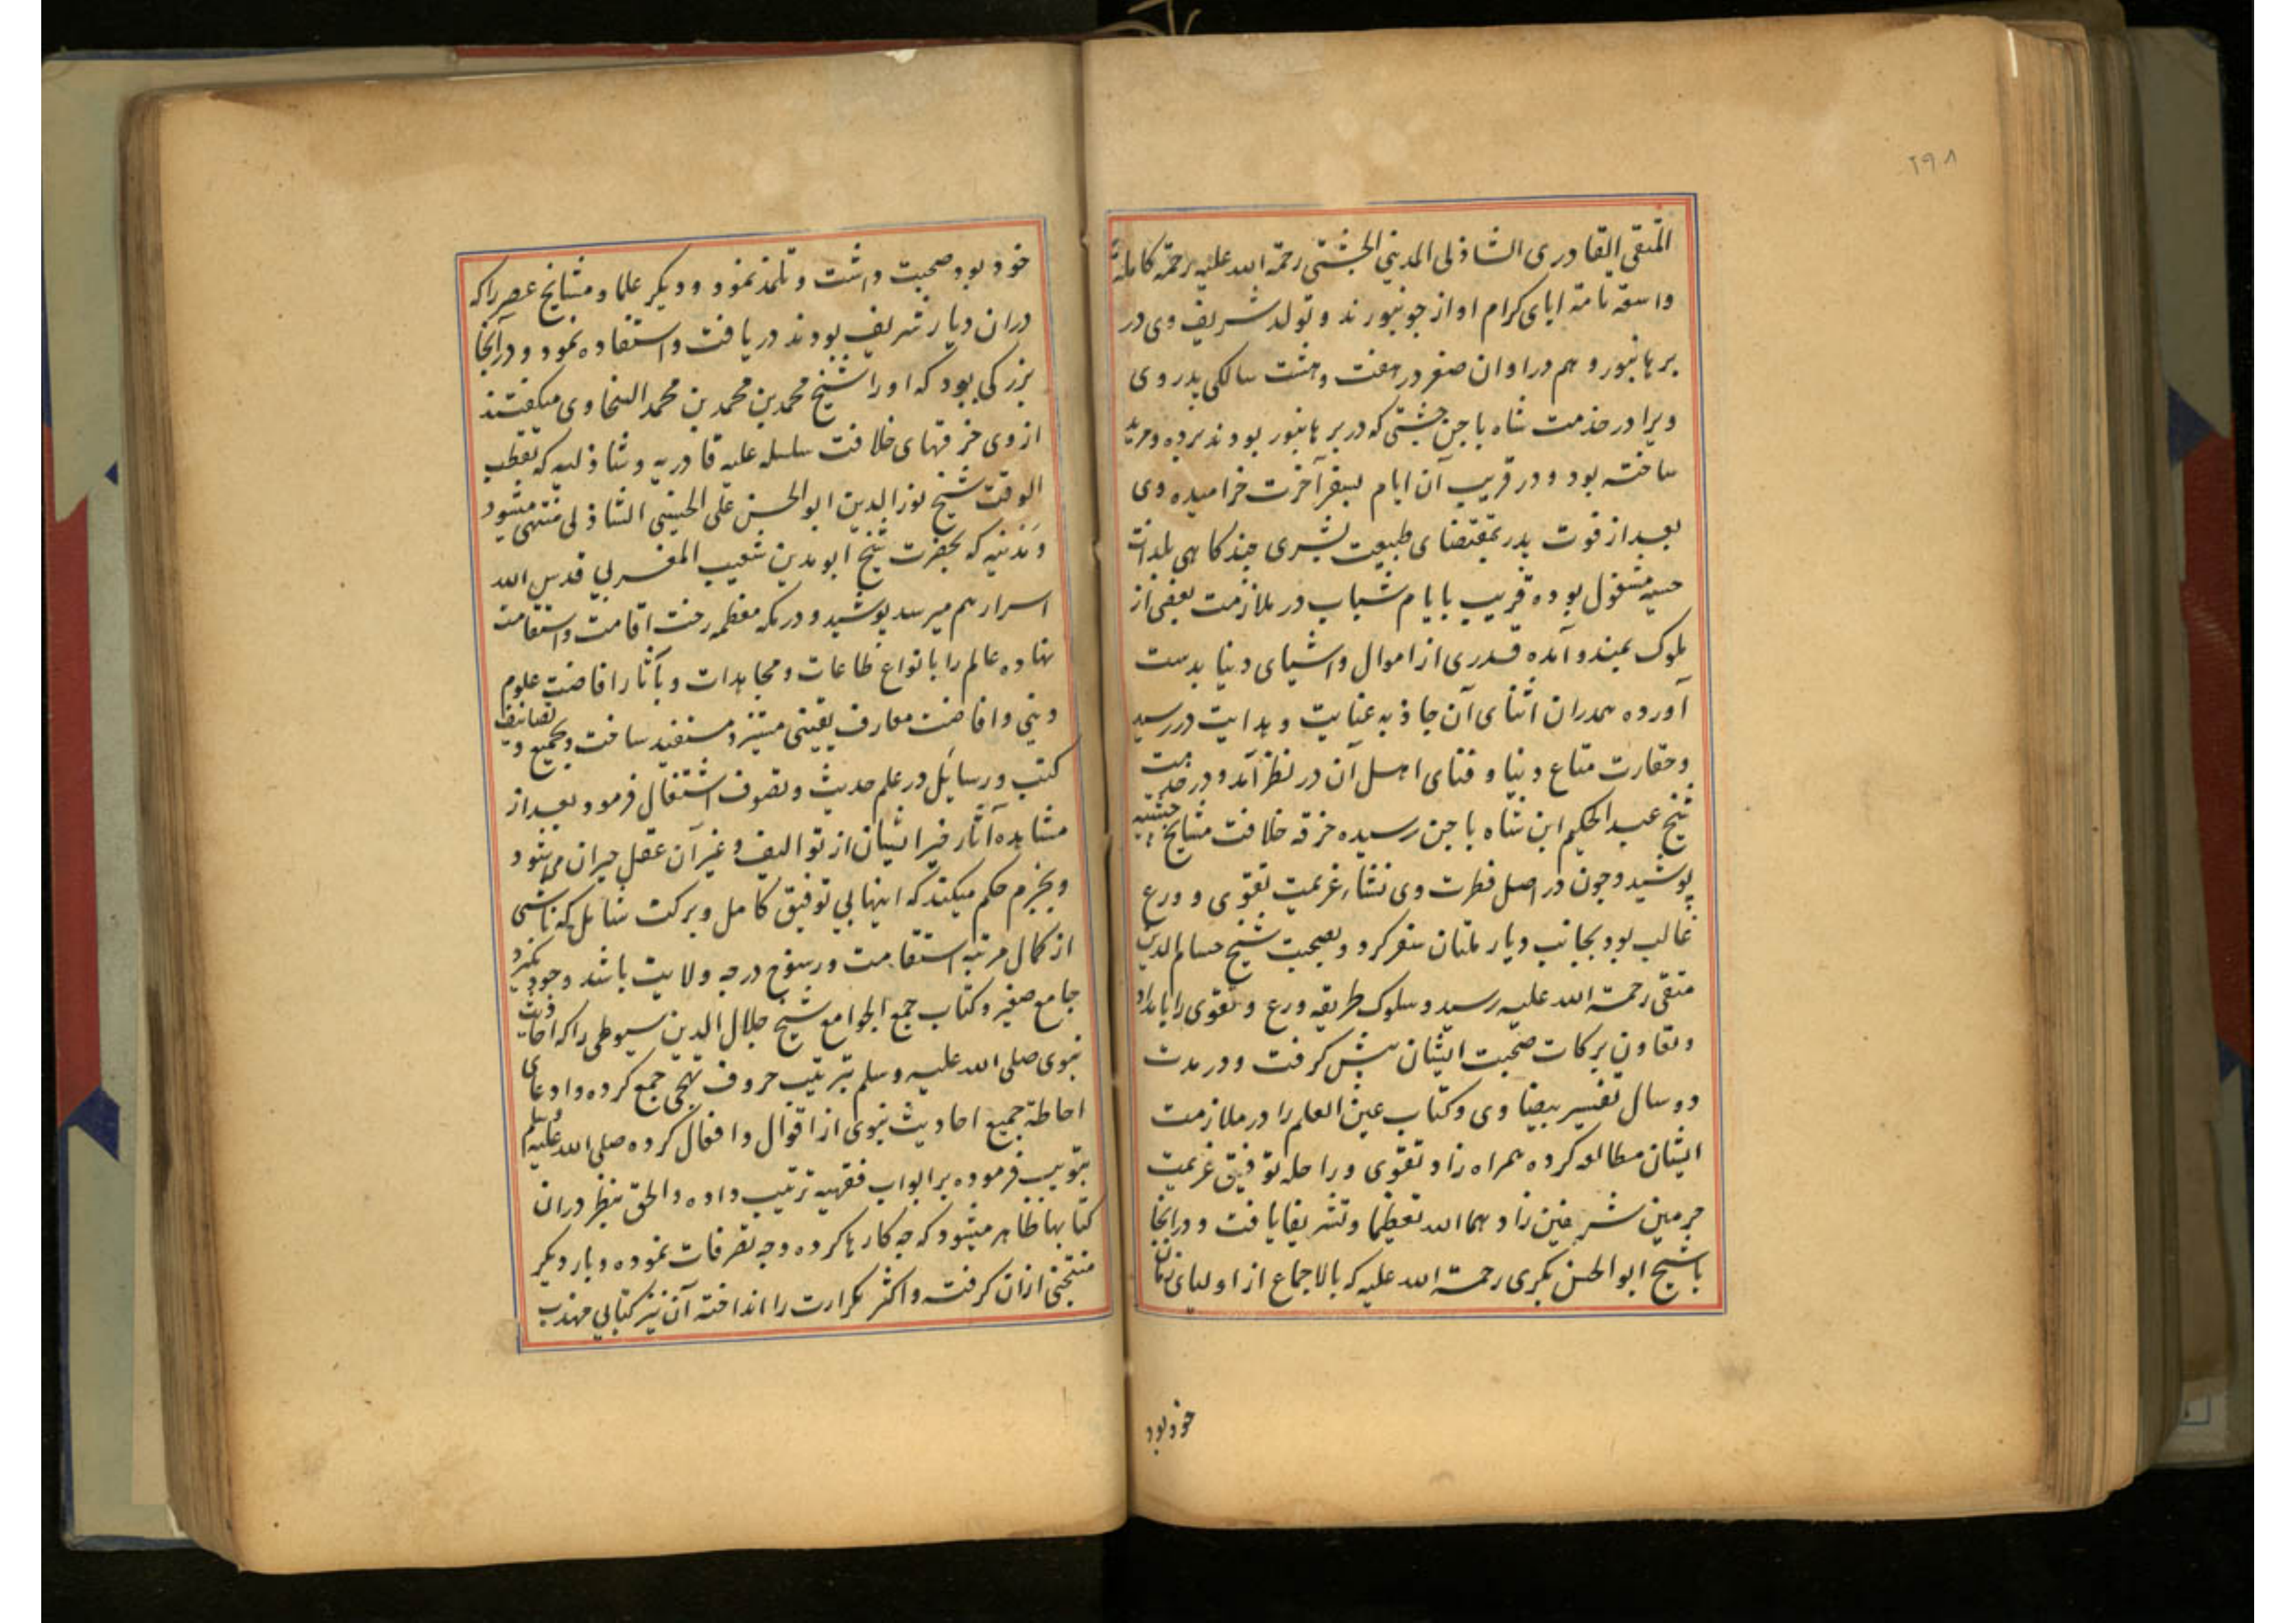 ۲۹۸
المتقی القادری الشاذلی المدینی الجشتی رحمة الله علیه رحمة کاملة
واسعة تامة ابای کرام او از جونپورند و تولد شریف وی در
برهانپور و هم در اوان صغر در هفت و هشت سالکی پدر وی
ویرا در خدمت شاه باجن جشتی که در برهانپور بودند برده و مرید
ساخته بود و در قریب آن ایام بسفر آخرت خرامیده وی
بعد از فوت پدر بمقتضای طبیعت بشری چندکاهی بلذات
حسیه مشغول بوده قریب بایام شباب در ملازمت بعضی از
ملوک بمندو آمده قدری از اموال و اشیای دنیا بدست
آورده همدران اثنای آن جاذبه عنایت و هدایت در رسید
و حقارت متاع دنیا و فنای اهل آن در نظر آمد و در خدمت
شیخ عبد الحکیم ابن شاه باجن رسیده خرقه خلافت مشایخ جشتیه
پوشید و چون در اصل فطرت وی نشاء عزیمت تقوی و ورع
غالب بود بجانب دیار ملتان سفر کرد و بصحبت شیخ حسام الدین
متقی رحمة الله علیه رسید و سلوک طریقه ورع و تقوی را بامداد
و تعاون برکات صحبت ایشان پیش کرفت و در مدت
دو سال تفسیر بیضاوی و کتاب عین العلم را در ملازمت
ایشان مطالعه کرده همراه زاد تقوی و راحله توفیق عزیمت
حرمین شریفین زادهما الله تعظیما و تشریفا یافت و در انجا
با شیخ ابو الحسن بکری رحمة الله علیه که بالاجماع از اولیای زمان
خود بود
خود بود صحبت داشت و تلمذ نمود و دیکر علما و مشایخ عصر را که
دران دیار شریف بودند دریافت و استفاده نمود و در آنجا
بزرکی بود که او را شیخ محمد بن محمد بن محمد السخاوی میکفتند
از وی خرقهای خلافت سلسله علیه قادریه و شاذلیه که بقطب
الوقت شیخ نور الدین ابو الحسن علی الحسینی الشاذلی منتهی میشود
و مدنیه که بحضرت شیخ ابو مدین شعیب المغربی قدس الله
اسرارهم میرسد پوشید و در مکه معظمه رخت اقامت و استقامت
نهاده عالم را بانواع طاعات و مجاهدات و بآثار افاضت علوم
دینی و افاضت معارف یقینی مستنیر و مستفید ساخت و بجمیع و تصانیف
کتب و رسایل در علم حدیث و تصوف اشتغال فرمود بعد از
مشاهده آثار خیر ایشان از توالیف و غیر آن عقل حیران میشود
و بجزم حکم میکند که اینها بی توفیق کامل و برکت شامل که ناشی
از کمال مرتبه استقامت و رسوخ درجه ولایت باشد وجود نکیرد
جامع صغیر و کتاب جمع الجوامع شیخ جلال الدین سیوطی را که احادیث
نبوی صلی الله علیه وسلم بترتیب حروف تهجی جمع کرده و ادعای
احاطة جمیع احادیث نبوی از اقوال و افعال کرده صلی الله علیه وسلم
تبویب فرموده بر ابواب فقهیه ترتیب داده و الحق بنظر دران
کتابها ظاهر میشود که چه کارها کرده و چه تصرفات نموده و بار دیکر
منتخبی ازان کرفته و اکثر مکررات را انداخته آن نیز کتابی مهذب